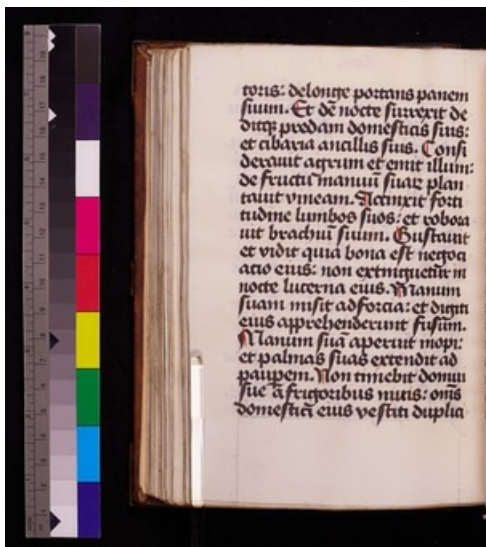 toris: de longe portans panem
suum. Et dē nocte surrexit de
ditq; predam domesticis suis:
et cibaria ancillis suis. Consi
derauit agrum et emit illum:
de fructu manuū suaꝝ plan
tauit vineam. Accinxit forti
tudine lumbos suos: et robora
uit brachiū suum. Gustauit
et vidit quia bona est negoci
atio eius: non extinguetur in
nocte lucerna eius. Manum
suam misit ad forcia: et digiti
eius apprehenderunt fusum.
Manum suā aperuit inopi:
et palmas suas extendit ad
paupem. Non timebit domui
sue a frigoribus niuis: oms
domestici eius vestiti duplici